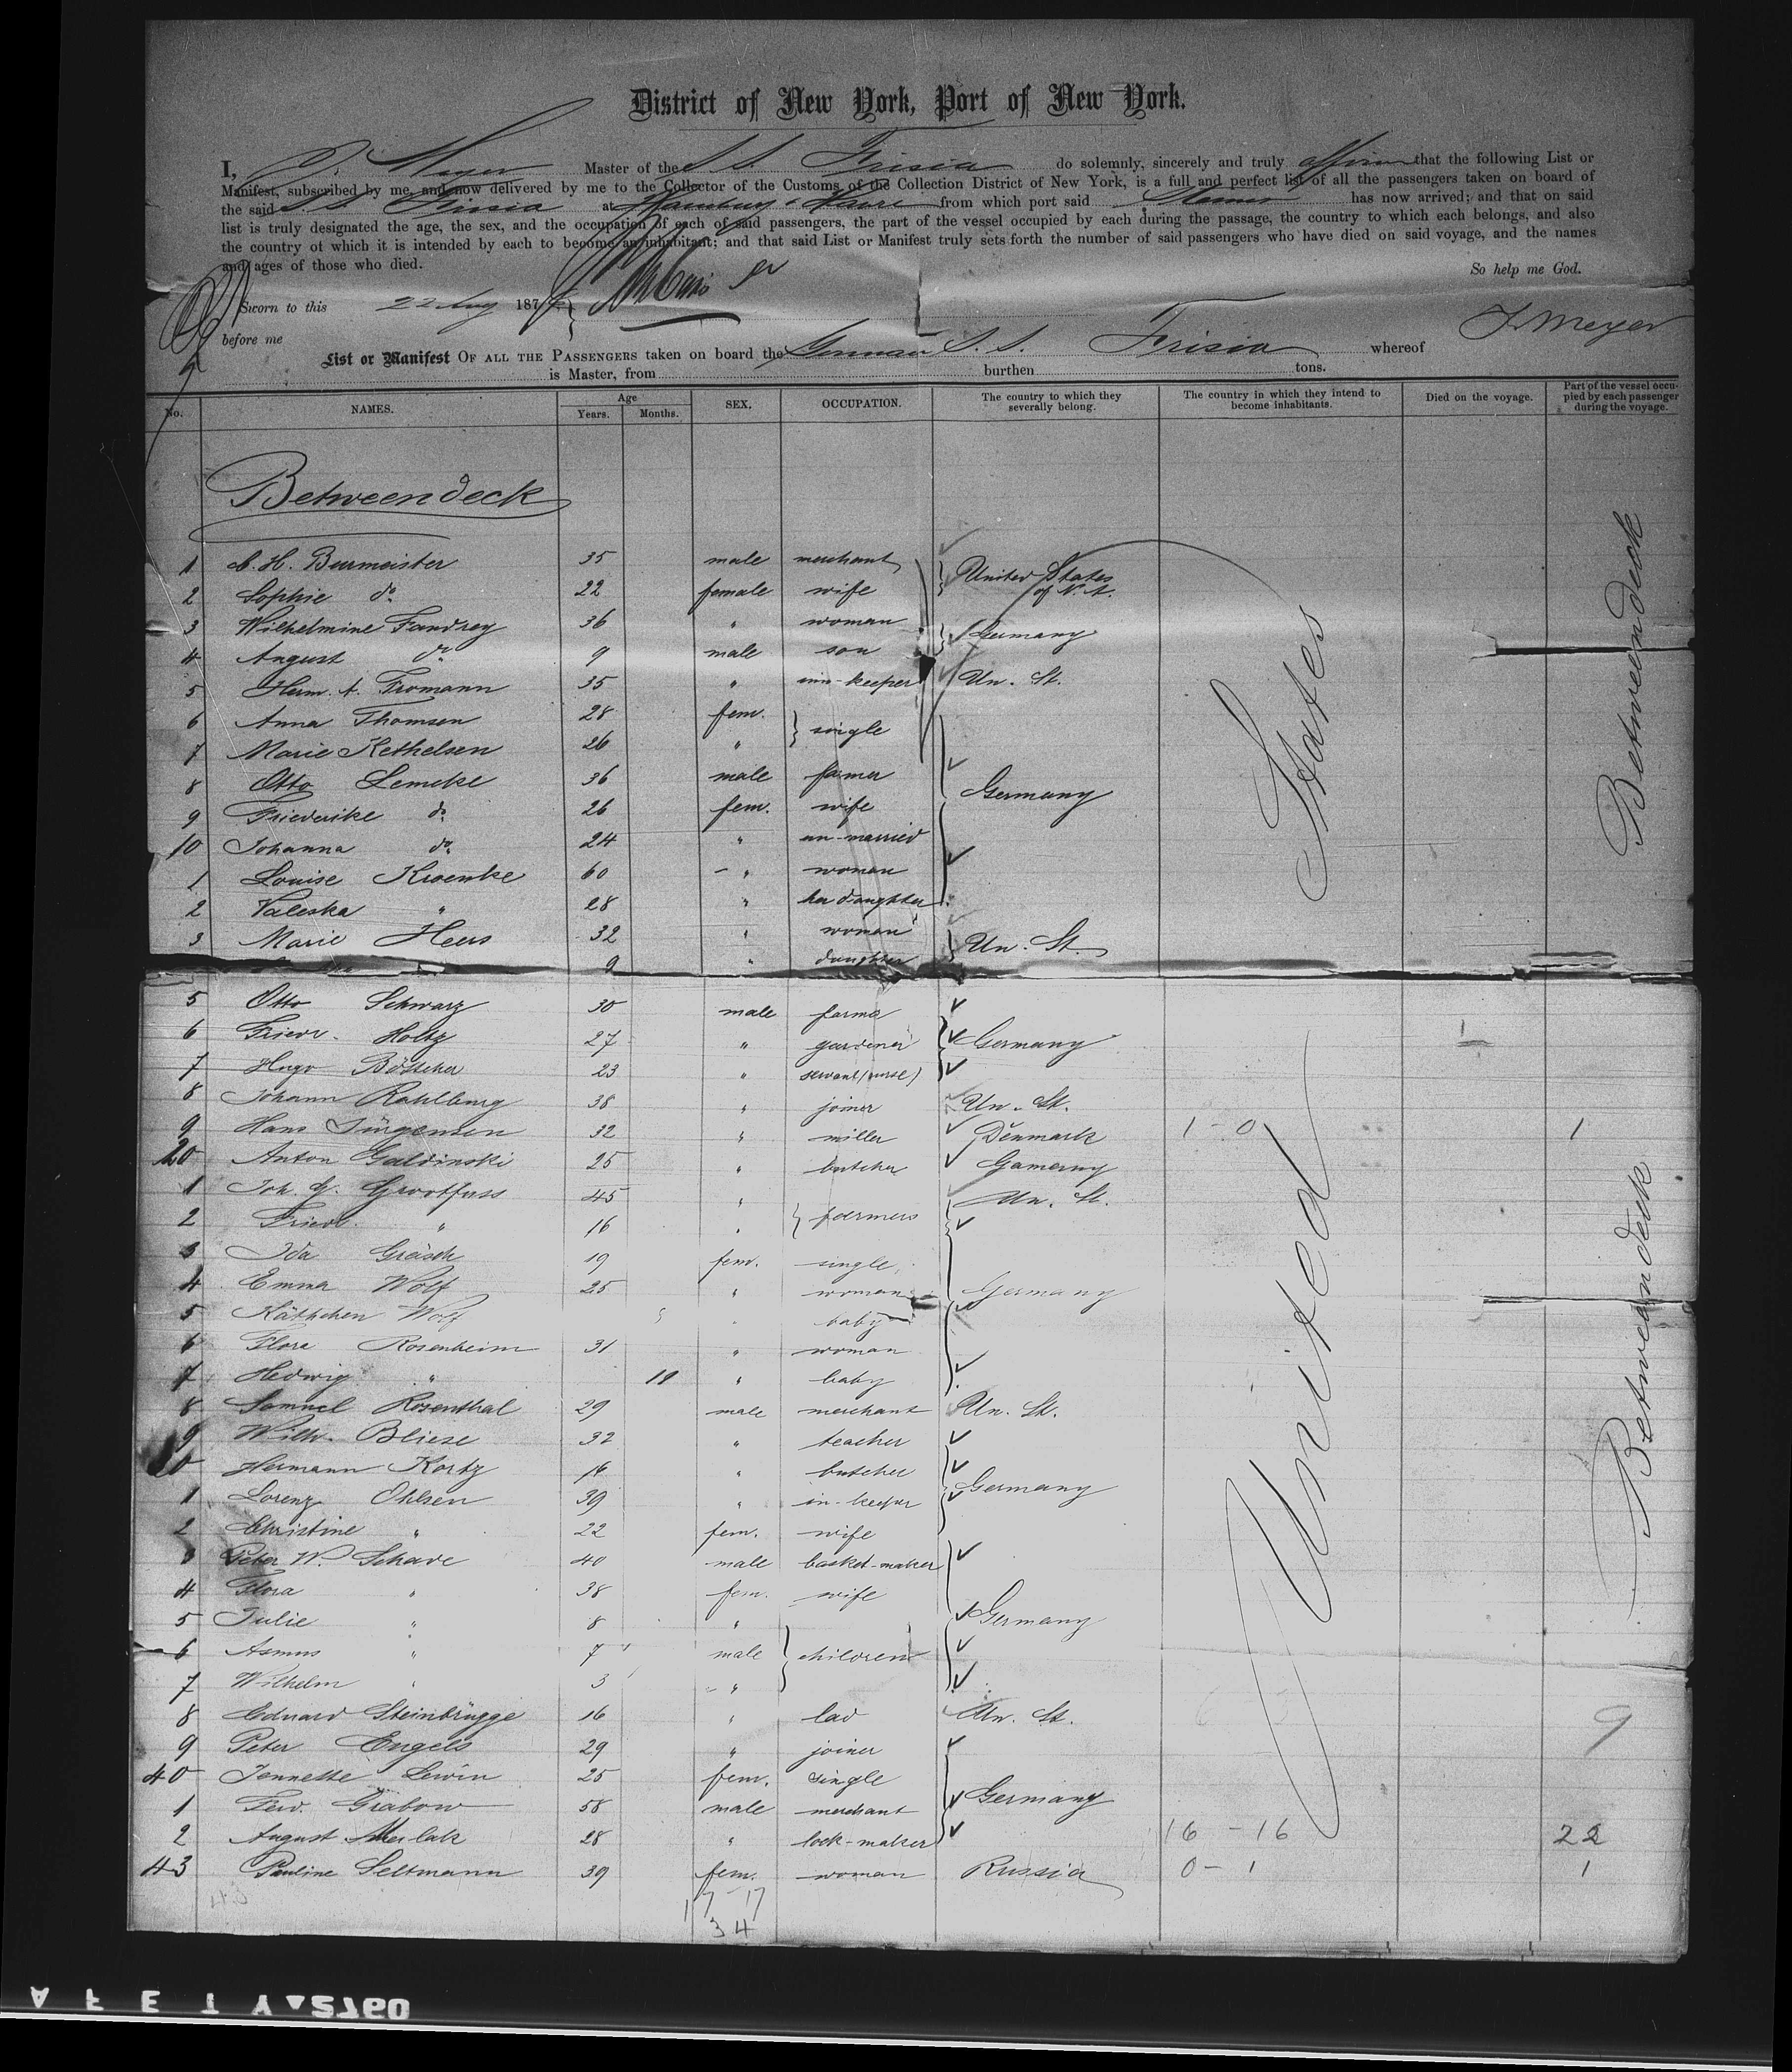 District of New York, Port of New York.
I, Meyer Master of the S. S. Frisia do solemnly, sincerely and truly affirm that the following List or
Manifest, subscribed by me, and now delivered by me to the Collector of the Customs of the Collection District of New York, is a full and perfect list of all the passengers taken on board of
the said S. S. Frisia at Hamburg & Havre from which port said Steamer has now arrived; and that on said
list is truly designated the age, the sex, and the occupation of each of said passengers, the part of the vessel occupied by each during the passage, the country to which each belongs, and also
the country of which it is intended by each to become an inhabitant; and that said List or Manifest truly sets forth the number of said passengers who have died on said voyage, and the names
and ages of those who died. So help me God.
Sworn to this 22 Aug 187
before me Meyer
List or Manifest OF ALL THE PASSENGERS taken on board the German S. S. Frisia whereof
is Master, from burthen tons.
No. NAMES. Age Years. Months. SEX. OCCUPATION. The country to which they severally belong. The country in which they intend to become inhabitants. Died on the voyage. Part of the vessel occupied by each passenger during the voyage.
Betweendeck
1 C. H. Burmeister 35 male merchant United States of N. A.
2 Sophie do 22 female wife
3 Wilhelmine Fandrey 36 " woman Germany
4 August do 9 male son
5 Herm. A. Fromann 35 " inn-keeper Un. St.
6 Anna Thomsen 28 fem. single
7 Marie Kethelsen 26 "
8 Otto Lemcke 36 male farmer Germany
9 Friederike do 26 fem. wife
10 Johanna do 24 " un-married
1 Louise Kroenke 60 " woman
2 Valeska " 28 " her daughter
3 Marie Heers 32 " woman Un. St.
9 " daughter
5 Otto Schwarz 30 male farmer
6 Friedr. Holtz 27 " gardener Germany
7 Hugo Böttcher 23 " servant (nurse)
8 Johann Rahlburg 38 " joiner Un. St.
9 Hans Jürgensen 32 " miller Denmark 1 - 0 1
20 Anton Galdinski 25 " butcher Gamerny
1 Joh. G. Grootfuss 45 " farmers Un. St.
2 Friedr. " 16 "
3 Ida Gräsch 19 fem. single
4 Emma Wolf 25 " woman Germany
5 Käthchen Wolf baby
6 Flora Rosenheim 31 " woman
7 Hedwig " 10 " baby
8 Samuel Rosenthal 29 male merchant Un. St.
9 Wilh. Bliese 32 " teacher
0 Hermann Kortz 16 " butcher Germany
1 Lorenz Ohlsen 39 " in-keeper
2 Christine " 22 fem. wife
3 Peter W. Schave 40 male basket-maker
4 Flora " 38 fem. wife
5 Julie " 8 " Germany
6 Asmus " 7 male children
7 Wilhelm " 3 "
8 Eduard Steinbrügge 16 " lad Un. St. 9
9 Peter Engels 29 " joiner
40 Jennette Lewin 25 fem. single
1 Ferd. Grabow 58 male merchant Germany
2 August 28 " lock-maker 16 - 16 22
43 Pauline Seltmann 39 fem. woman Russia 0 - 1 1
17 17
34
United States
Betweendeck
Betweendeck